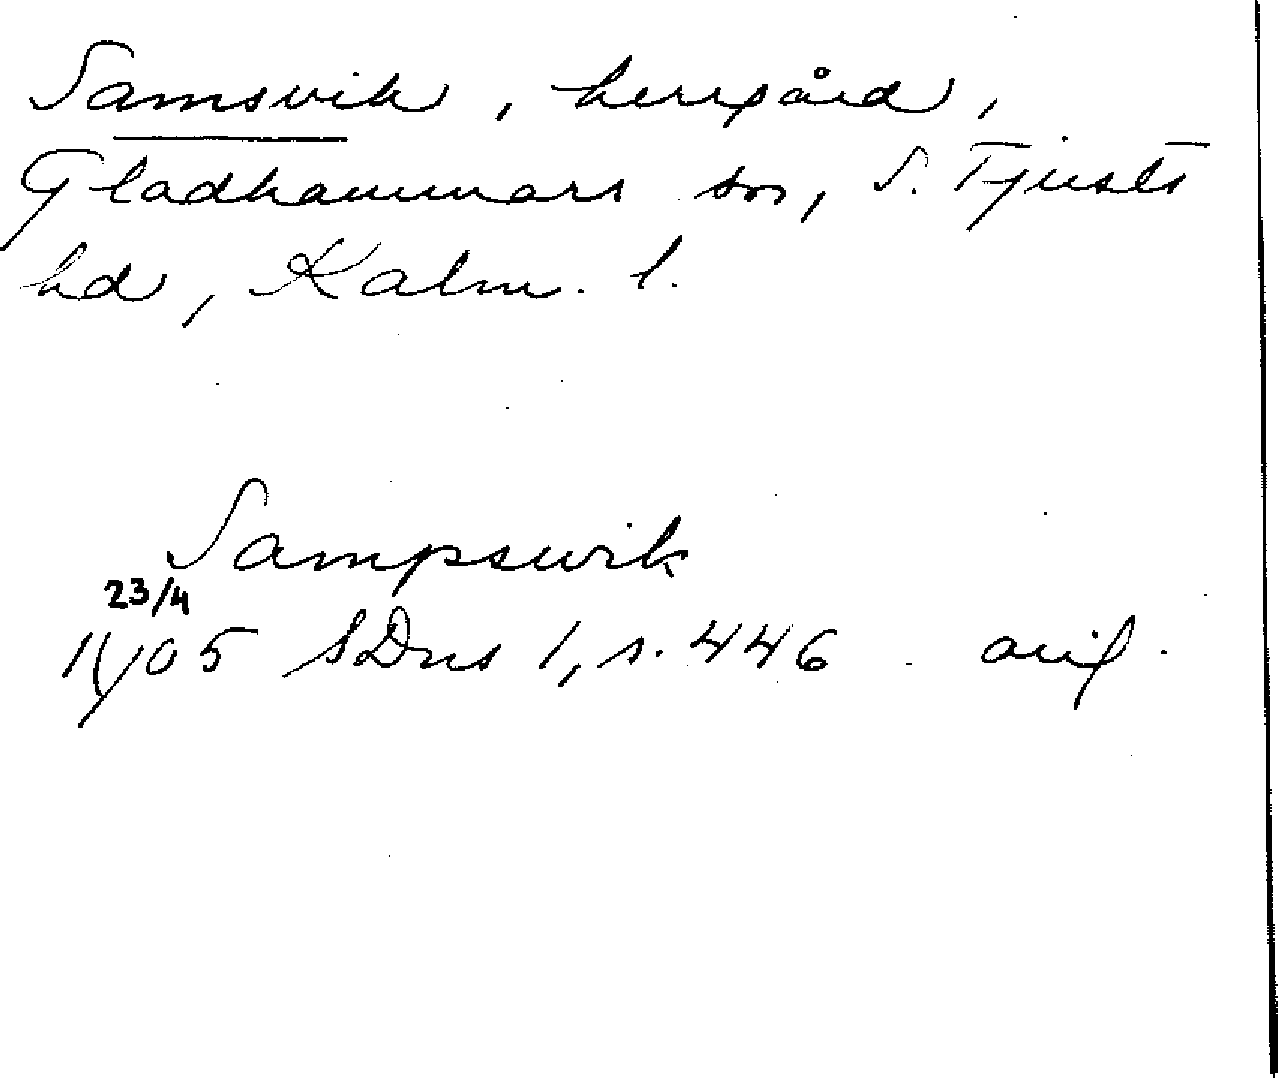 Samsvik, herrgård,
Gladhammars sn, S. Tjusts
hd, Kalm. l.
Sampswik
23/4
1405 SDns 1, s. 446 . avif.